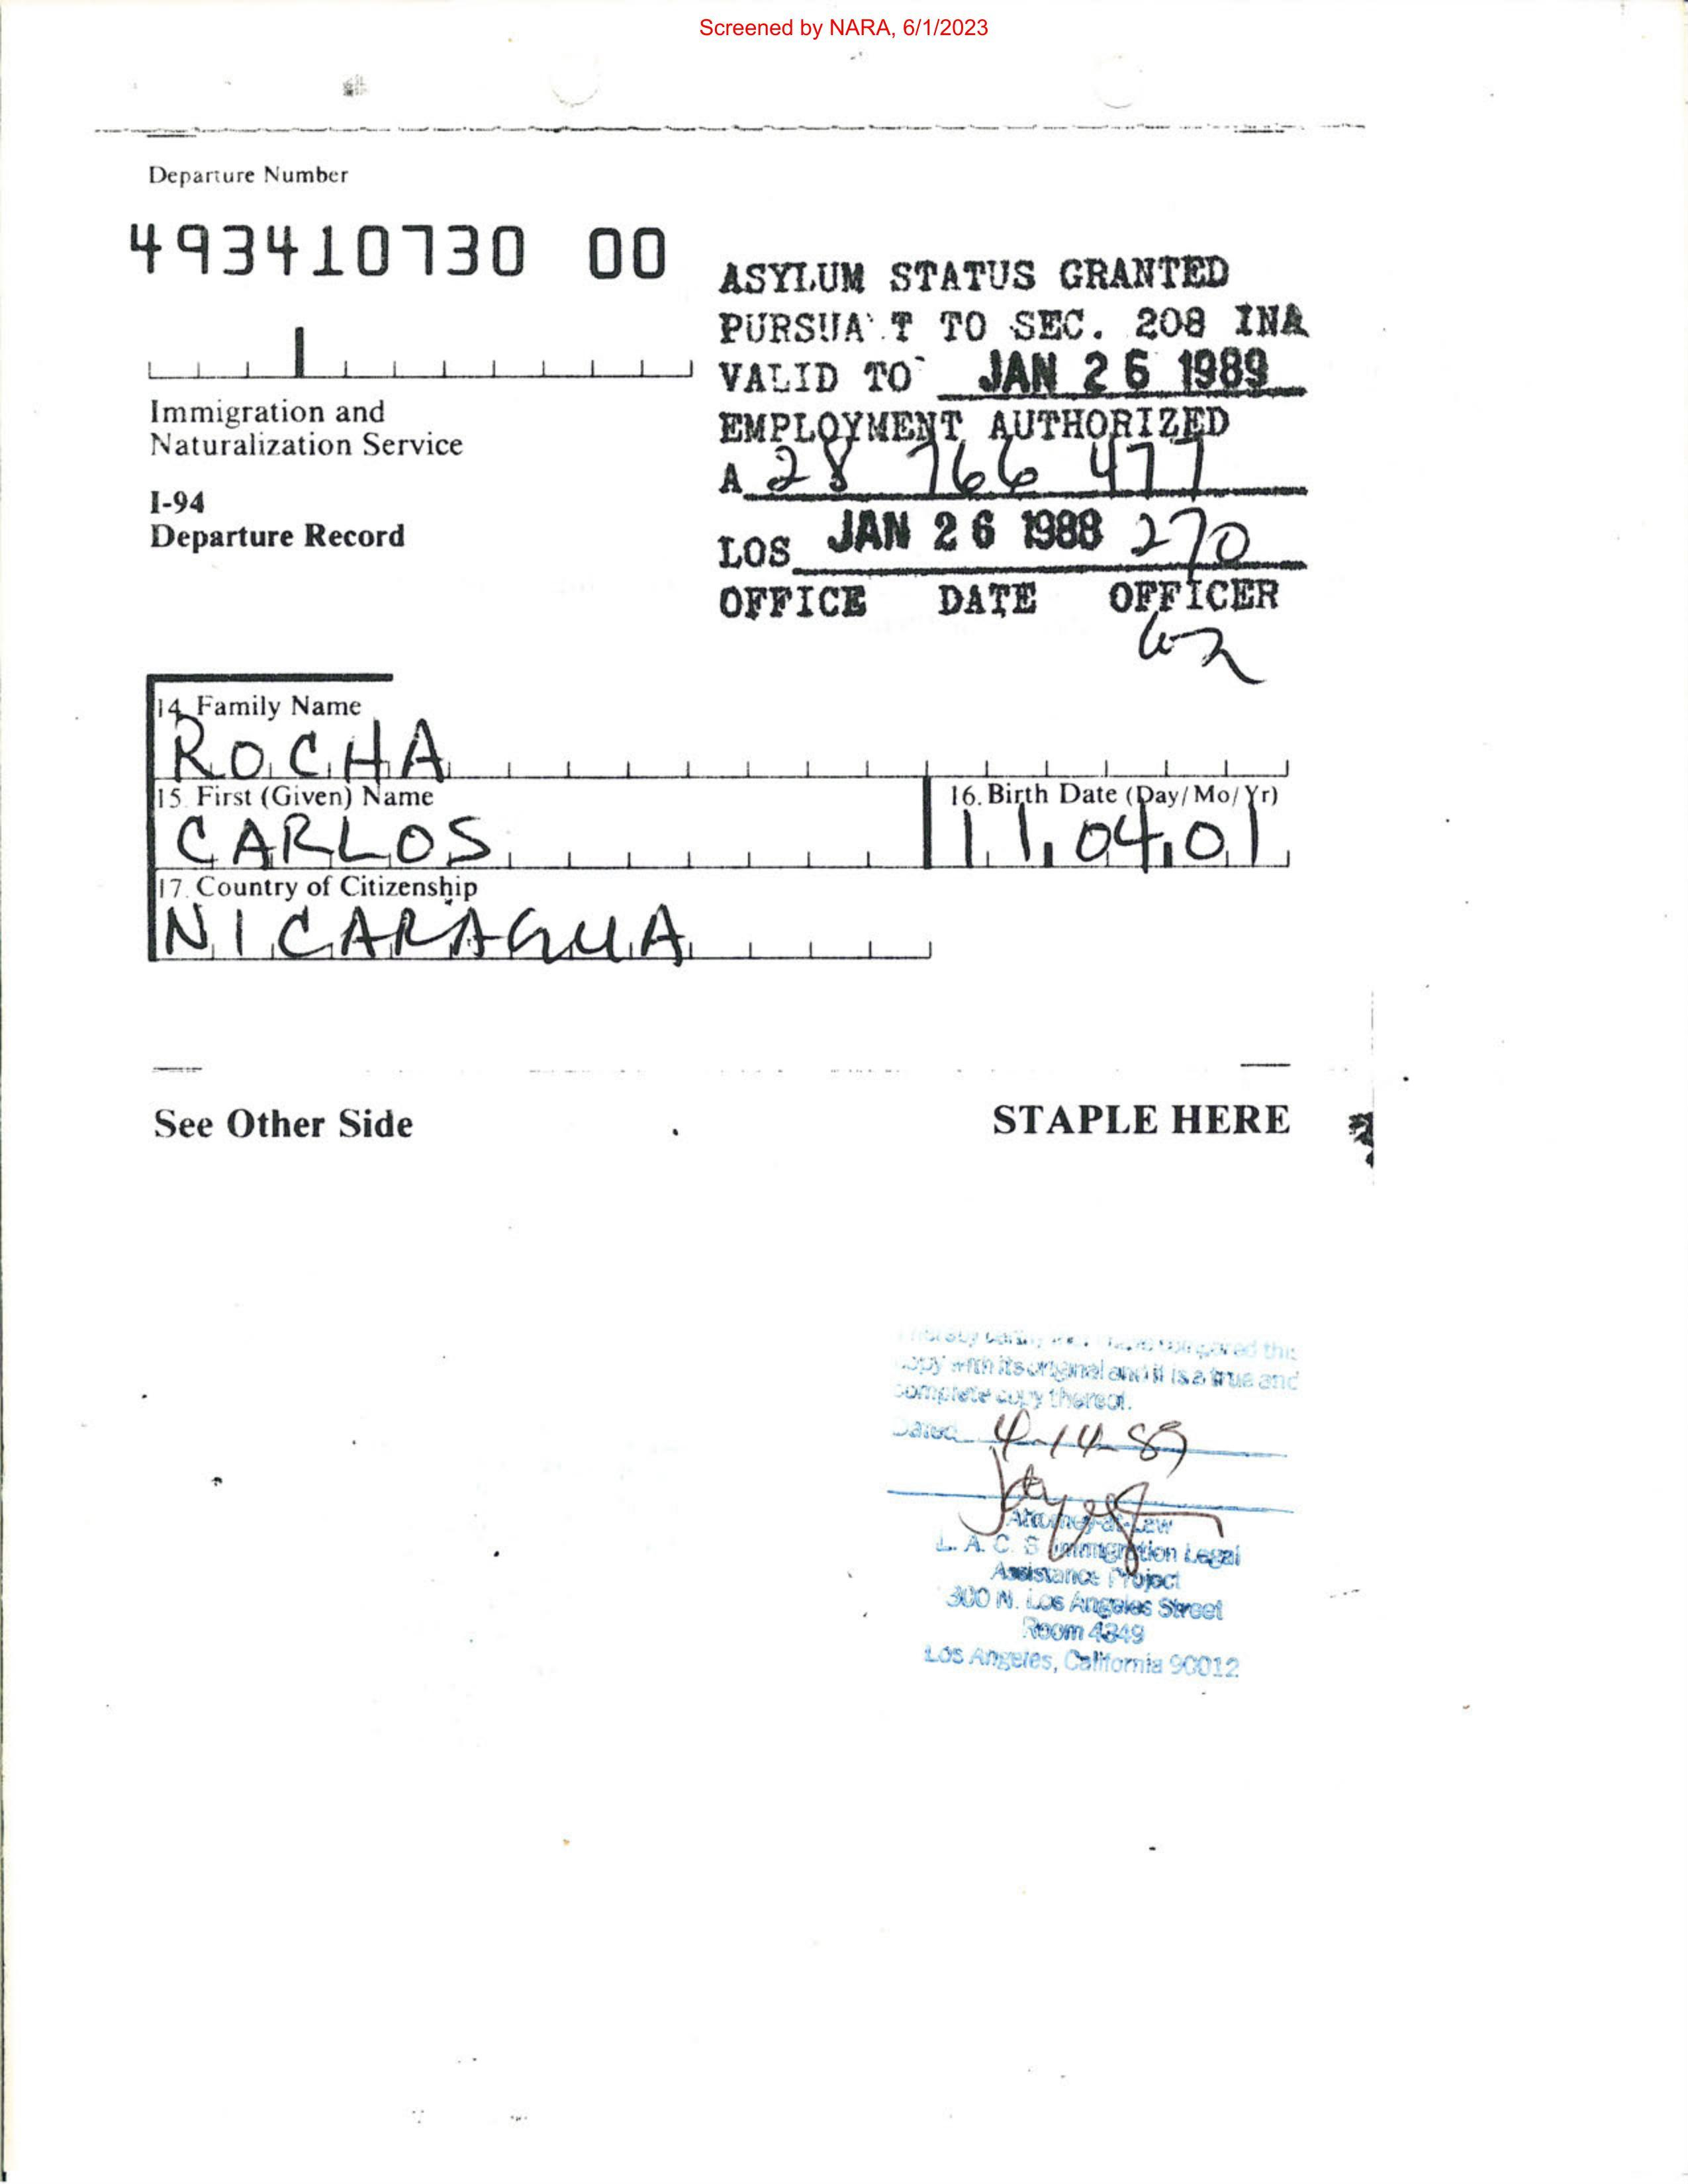 Screened by NARA, 6/1/2023
Departure Number
493410730 00
ASYLUM STATUS GRANTED
PURSUA T TO SEC. 208 INA
VALID TO JAN 26 1989
EMPLOYMENT AUTHORIZED
A 28 766 477
LOS JAN 26 1988 270
OFFICE DATE OFFICER
Immigration and
Naturalization Service
I-94
Departure Record
14. Family Name
ROCHA
15. First (Given) Name
CARLOS
16. Birth Date (Day/Mo/Yr)
11.04.01
17. Country of Citizenship
NICARAGUA
See Other Side
STAPLE HERE
I hereby certify that I have compared this
copy with its original and it is a true and
complete copy thereof.
Dated 4-14-89
Attorney-at-Law
L. A. C. S Immigration Legal
Assistance Project
300 N. Los Angeles Street
Room 4349
Los Angeles, California 90012